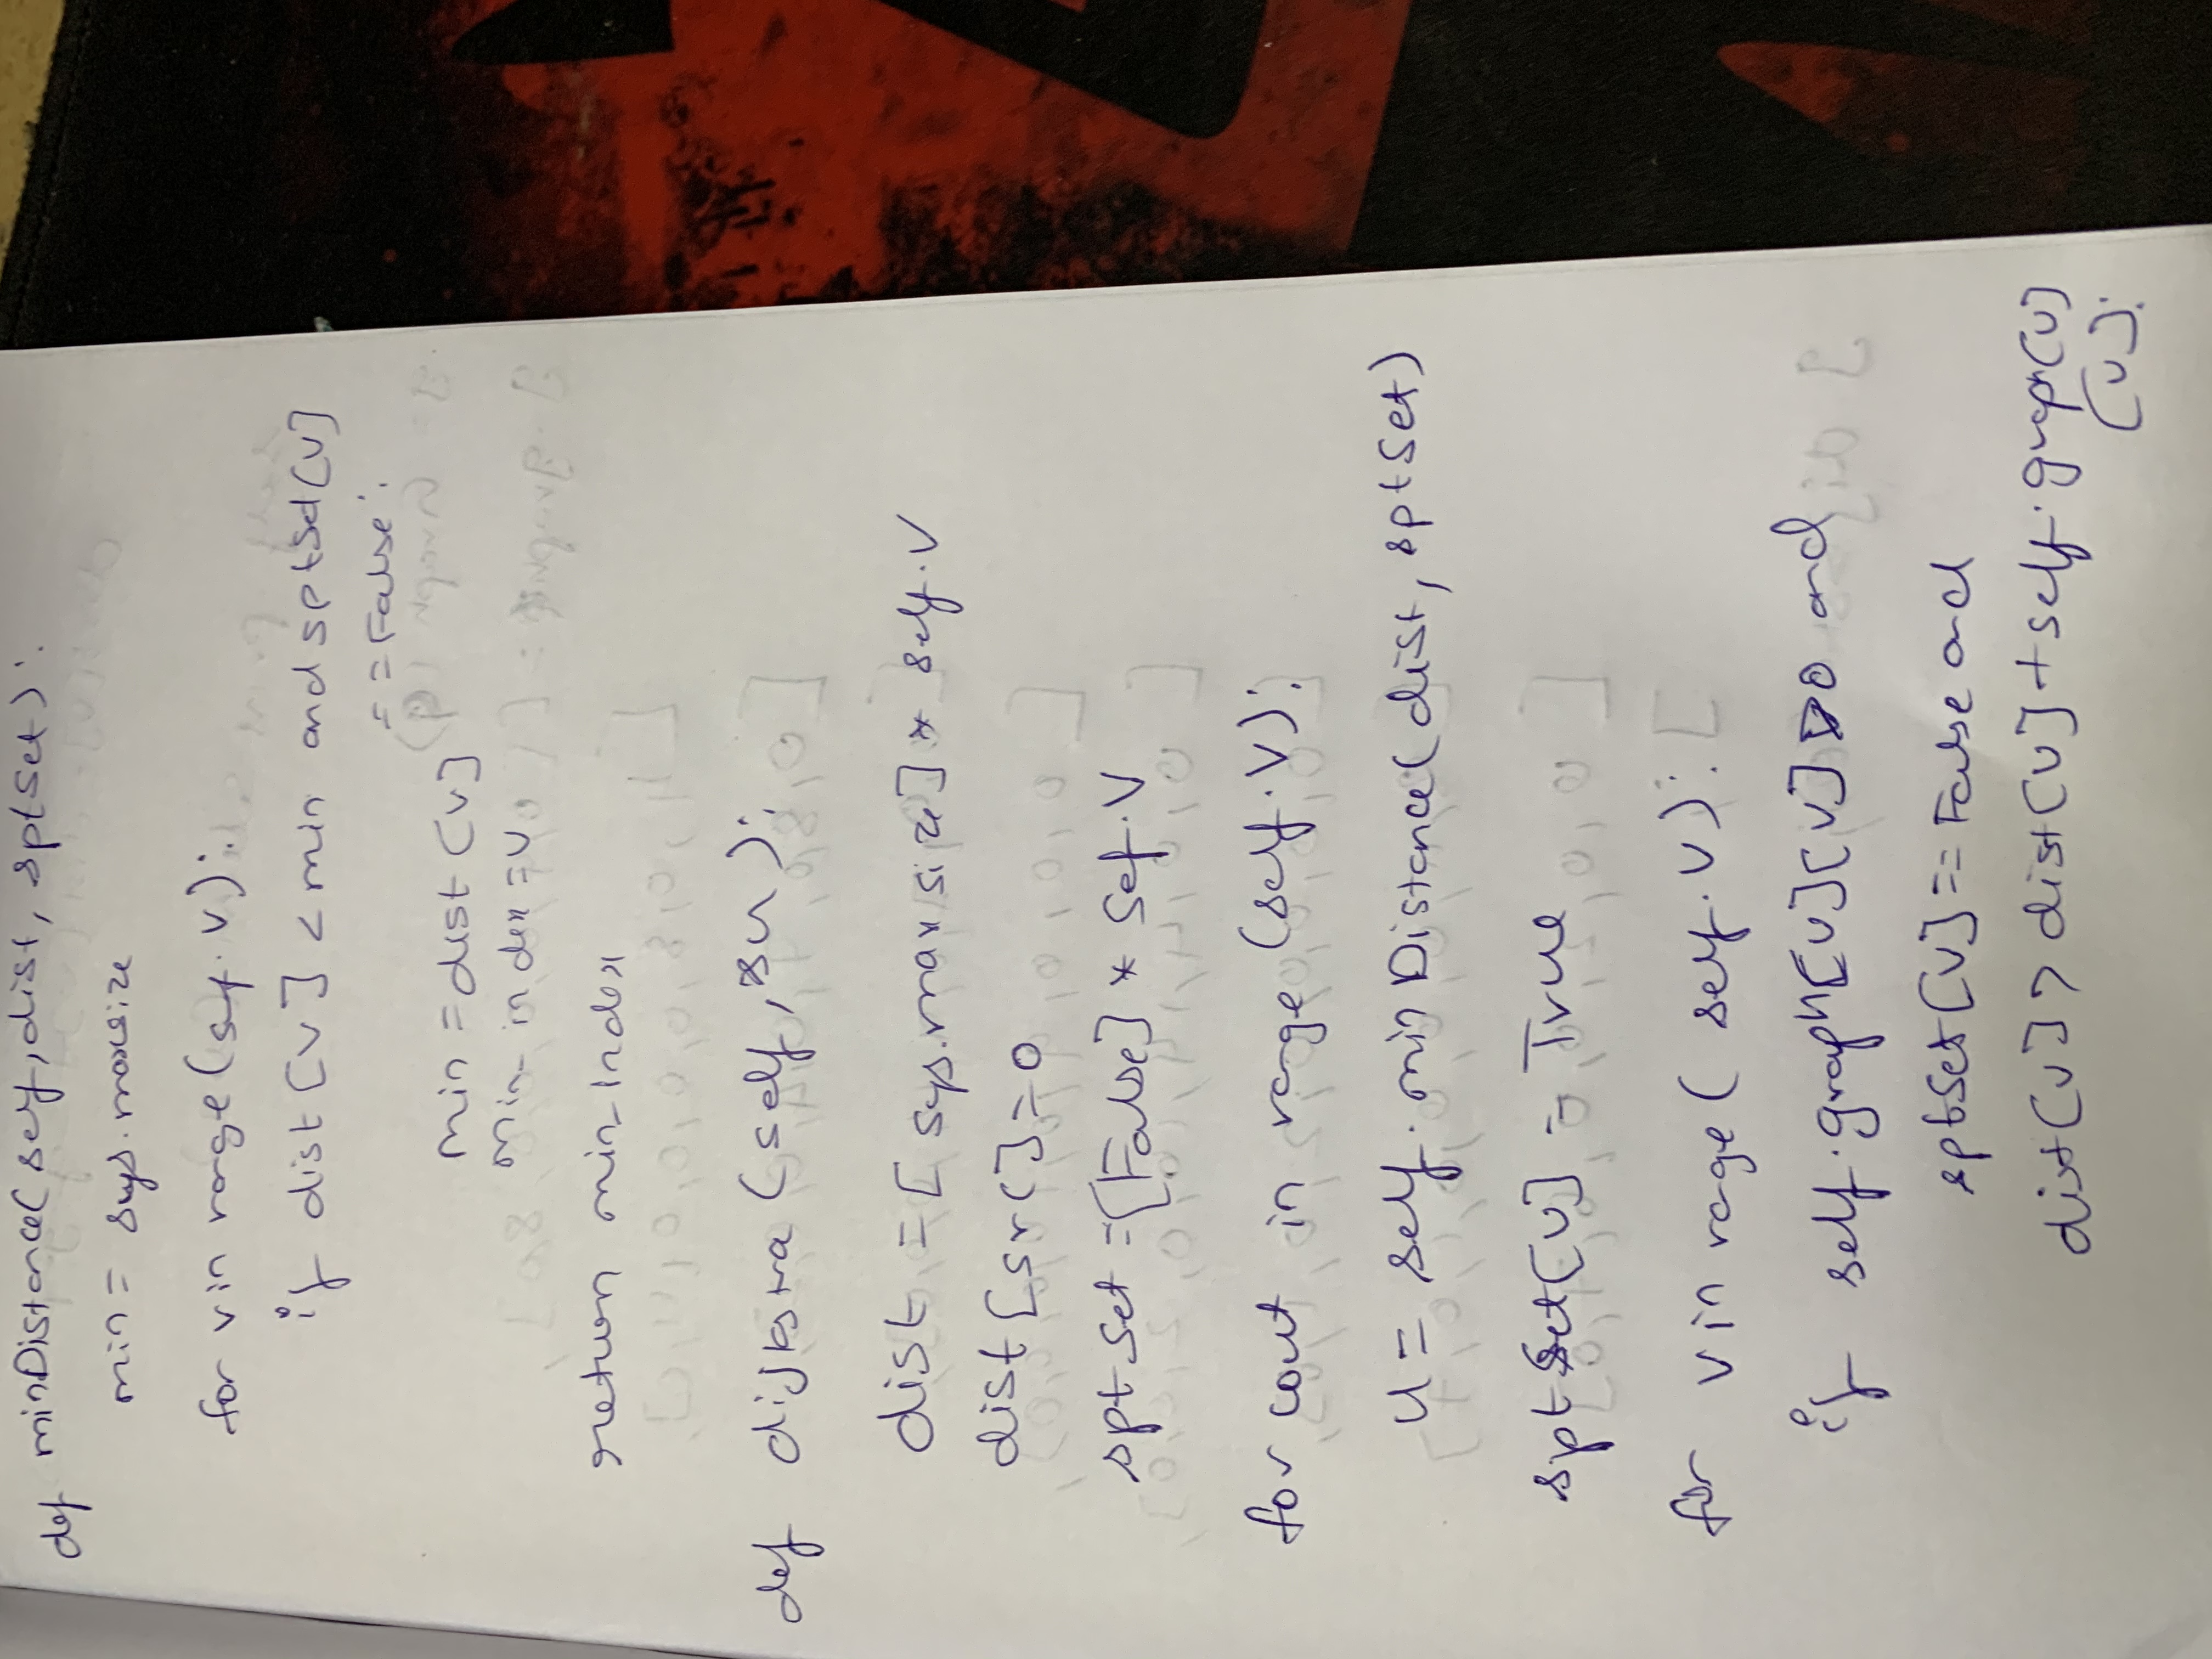 def minDistance(self, dist, sptSet):
min = sys.maxsize
for v in range(self.V):
if dist[v] < min and sptSet[v]
== False:
min = dist[v]
min_index = v
return min_index
def dijkstra(self, src):
dist = [sys.maxsize] * self.V
dist[src] = 0
sptSet = [False] * Sef.V
for cout in range (self.V):
u = self.minDistance(dist, sptSet)
sptSet[u] = True
for v in rage(self.V):
if self.graph[u][v] > 0 and
sptSet[v] == False and
dist[v] > dist[u] + self.graph[u]
[v]: